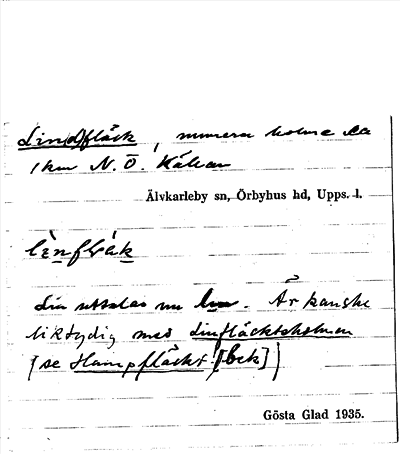 Lin(d)fläck, numera holme ca
1 km N.Ö. Kållan
Älvkarleby sn, Örbyhus hd, Upps. l.
lènflak
Lin uttalas nu len. Är kanske
liktydig med Linfläcksholmen
[se Hampfläcks [bek]]
Gösta Glad 1935.